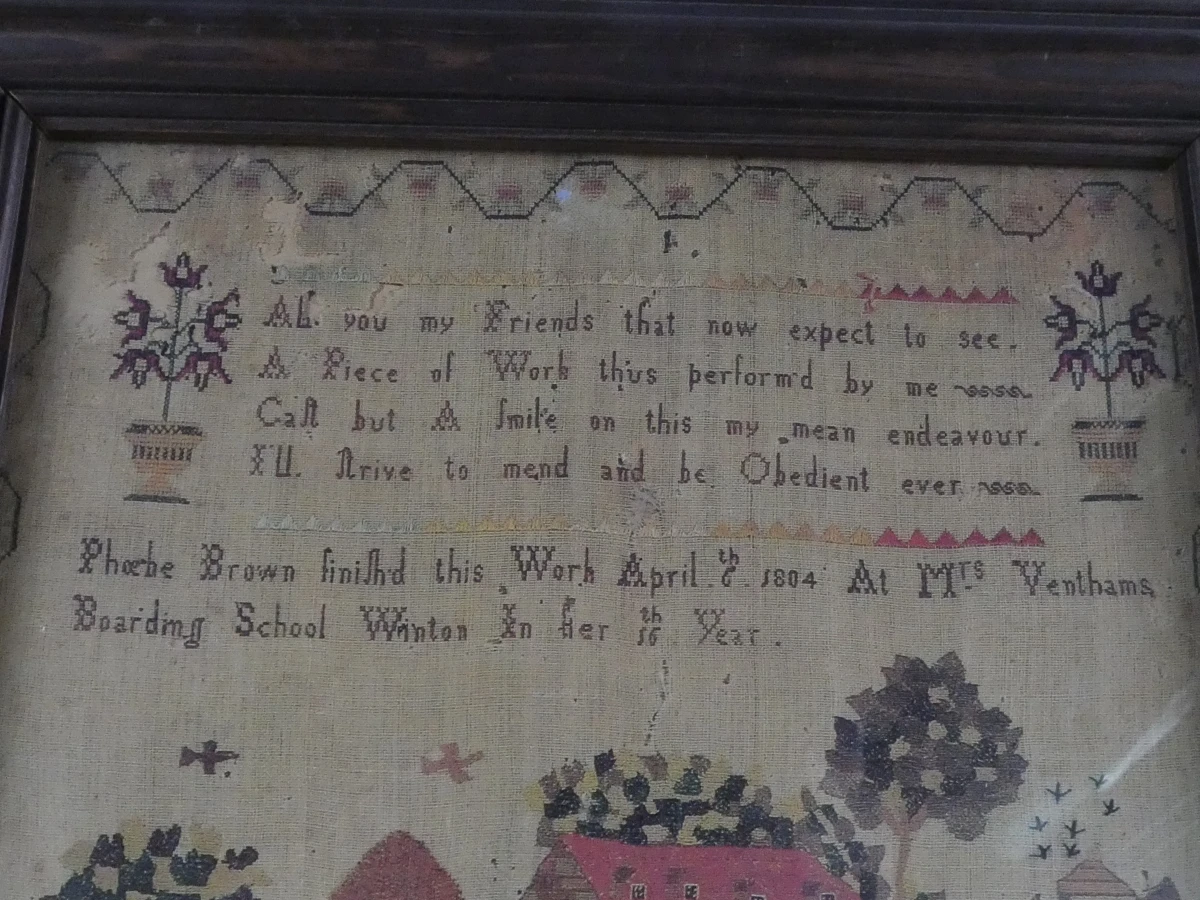 All. you my Friends that now expect to see.
A Piece of Work thus perform'd by me
Caſt but A ſmile on this my mean endeavour.
I'll. ſtrive to mend and be Obedient ever
Phoebe Brown finiſh'd this Work April 1804 At Mrs Venthams
Boarding School Winton In her 16th Year.